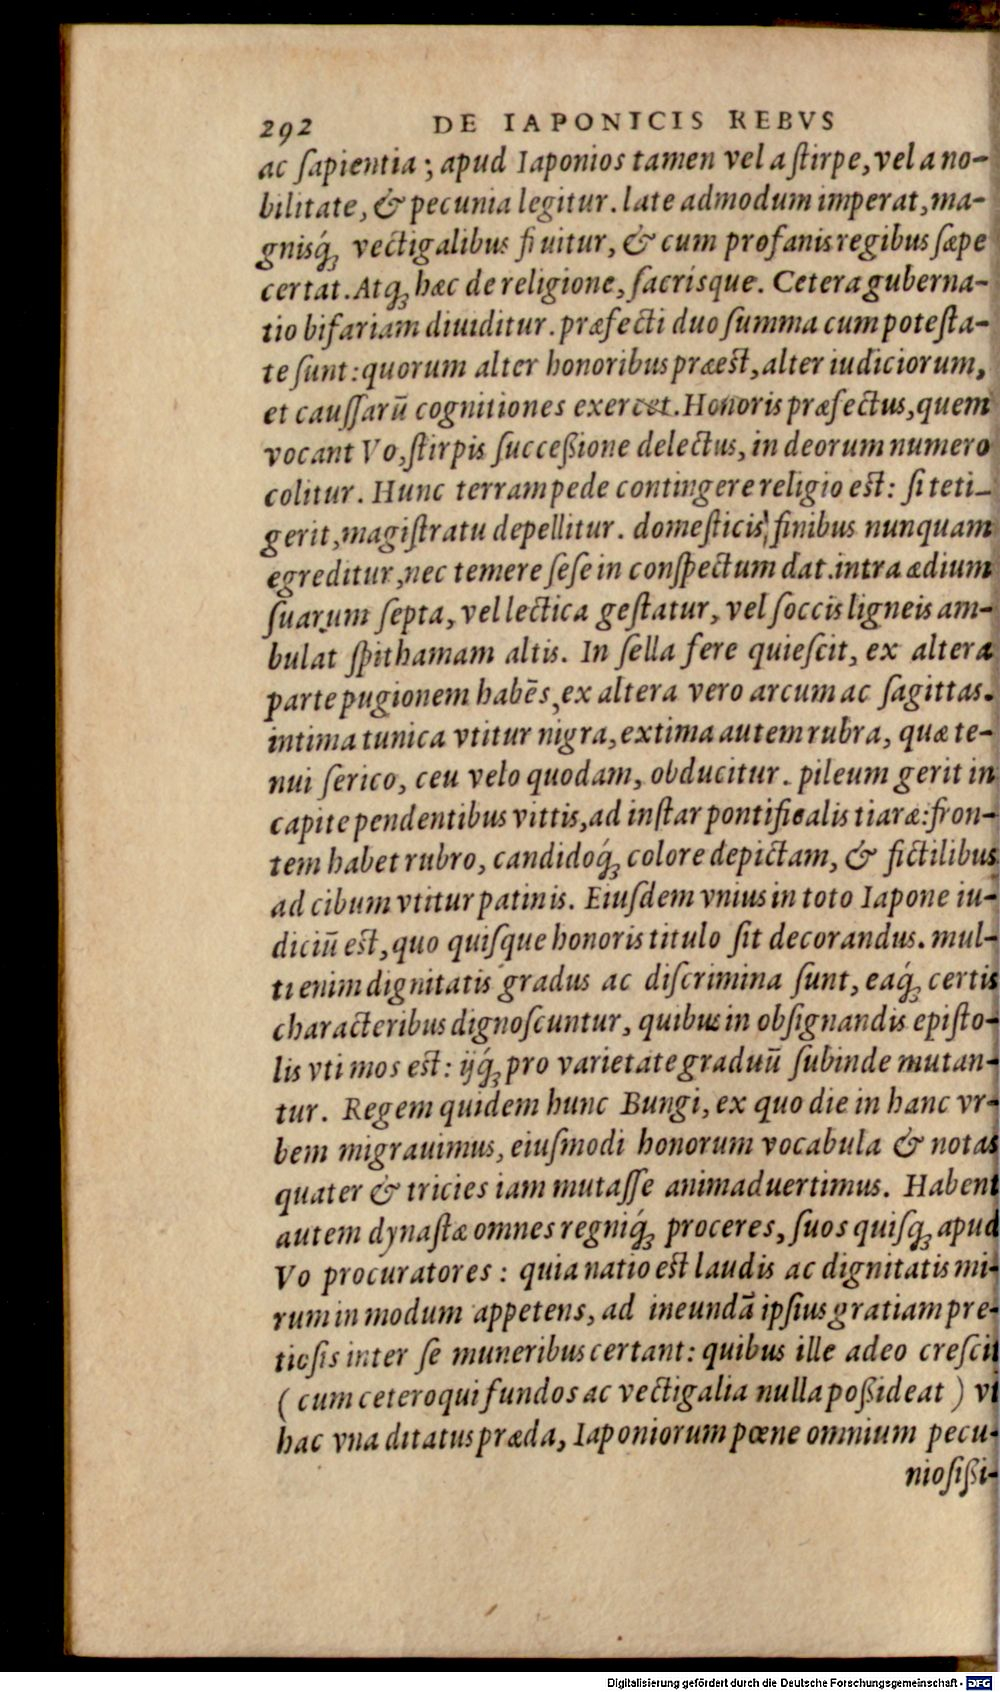 292 DE IAPONICIS REBVS
ac ſapientia; apud Iaponios tamen vel a ſtirpe, vel a no-
bilitate, & pecunia legitur. late admodum imperat, ma-
gnisq́ꝫ vectigalibus fruitur, & cum profanis regibus ſæpe
certat. Atqꝫ hæc de religione, ſacrisque. Cetera guberna-
tio bifariam diuiditur. præfecti duo ſumma cum poteſta-
te ſunt: quorum alter honoribus præest, alter iudiciorum,
et cauſſarū cognitiones exercet. Honoris præfectus, quem
vocant Vo, ſtirpis ſucceßione delectus, in deorum numero
colitur. Hunc terram pede contingere religio est: ſi teti-
gerit, magiſtratu depellitur. domeſticis finibus nunquam
egreditur, nec temere ſeſe in conſpectum dat. intra ædium
ſuarum ſepta, vel lectica geſtatur, vel ſoccis ligneis am-
bulat ſpithamam altis. In ſella fere quieſcit, ex altera
parte pugionem habēs, ex altera vero arcum ac ſagittas.
intima tunica vtitur nigra, extima autem rubra, quæ te-
nui ſerico, ceu velo quodam, obducitur. pileum gerit in
capite pendentibus vittis, ad inſtar pontificalis tiaræ: fron-
tem habet rubro, candidoq́ꝫ colore depictam, & fictilibus
ad cibum vtitur patinis. Eiuſdem vnius in toto Iapone iu-
diciū est, quo quiſque honoris titulo ſit decorandus. mul-
ti enim dignitatis gradus ac diſcrimina ſunt, eaq́ꝫ certis
characteribus dignoſcuntur, quibus in obſignandis epiſto-
lis vti mos est: ijq́ꝫ pro varietate graduū ſubinde mutan-
tur. Regem quidem hunc Bungi, ex quo die in hanc vr-
bem migrauimus, eiuſmodi honorum vocabula & notas
quater & tricies iam mutaſſe animaduertimus. Habent
autem dynaſtæ omnes regniq́ꝫ proceres, ſuos quiſqꝫ apud
Vo procuratores: quia natio est laudis ac dignitatis mi-
rum in modum appetens, ad ineundā ipſius gratiam pre-
tioſis inter ſe muneribus certant: quibus ille adeo creſcit
(cum ceteroqui fundos ac vectigalia nulla poßideat) vt
hac vna ditatus præda, Iaponiorum pœne omnium pecu-
nioſißi-
Digitalisierung gefördert durch die Deutsche Forschungsgemeinschaft - DFG